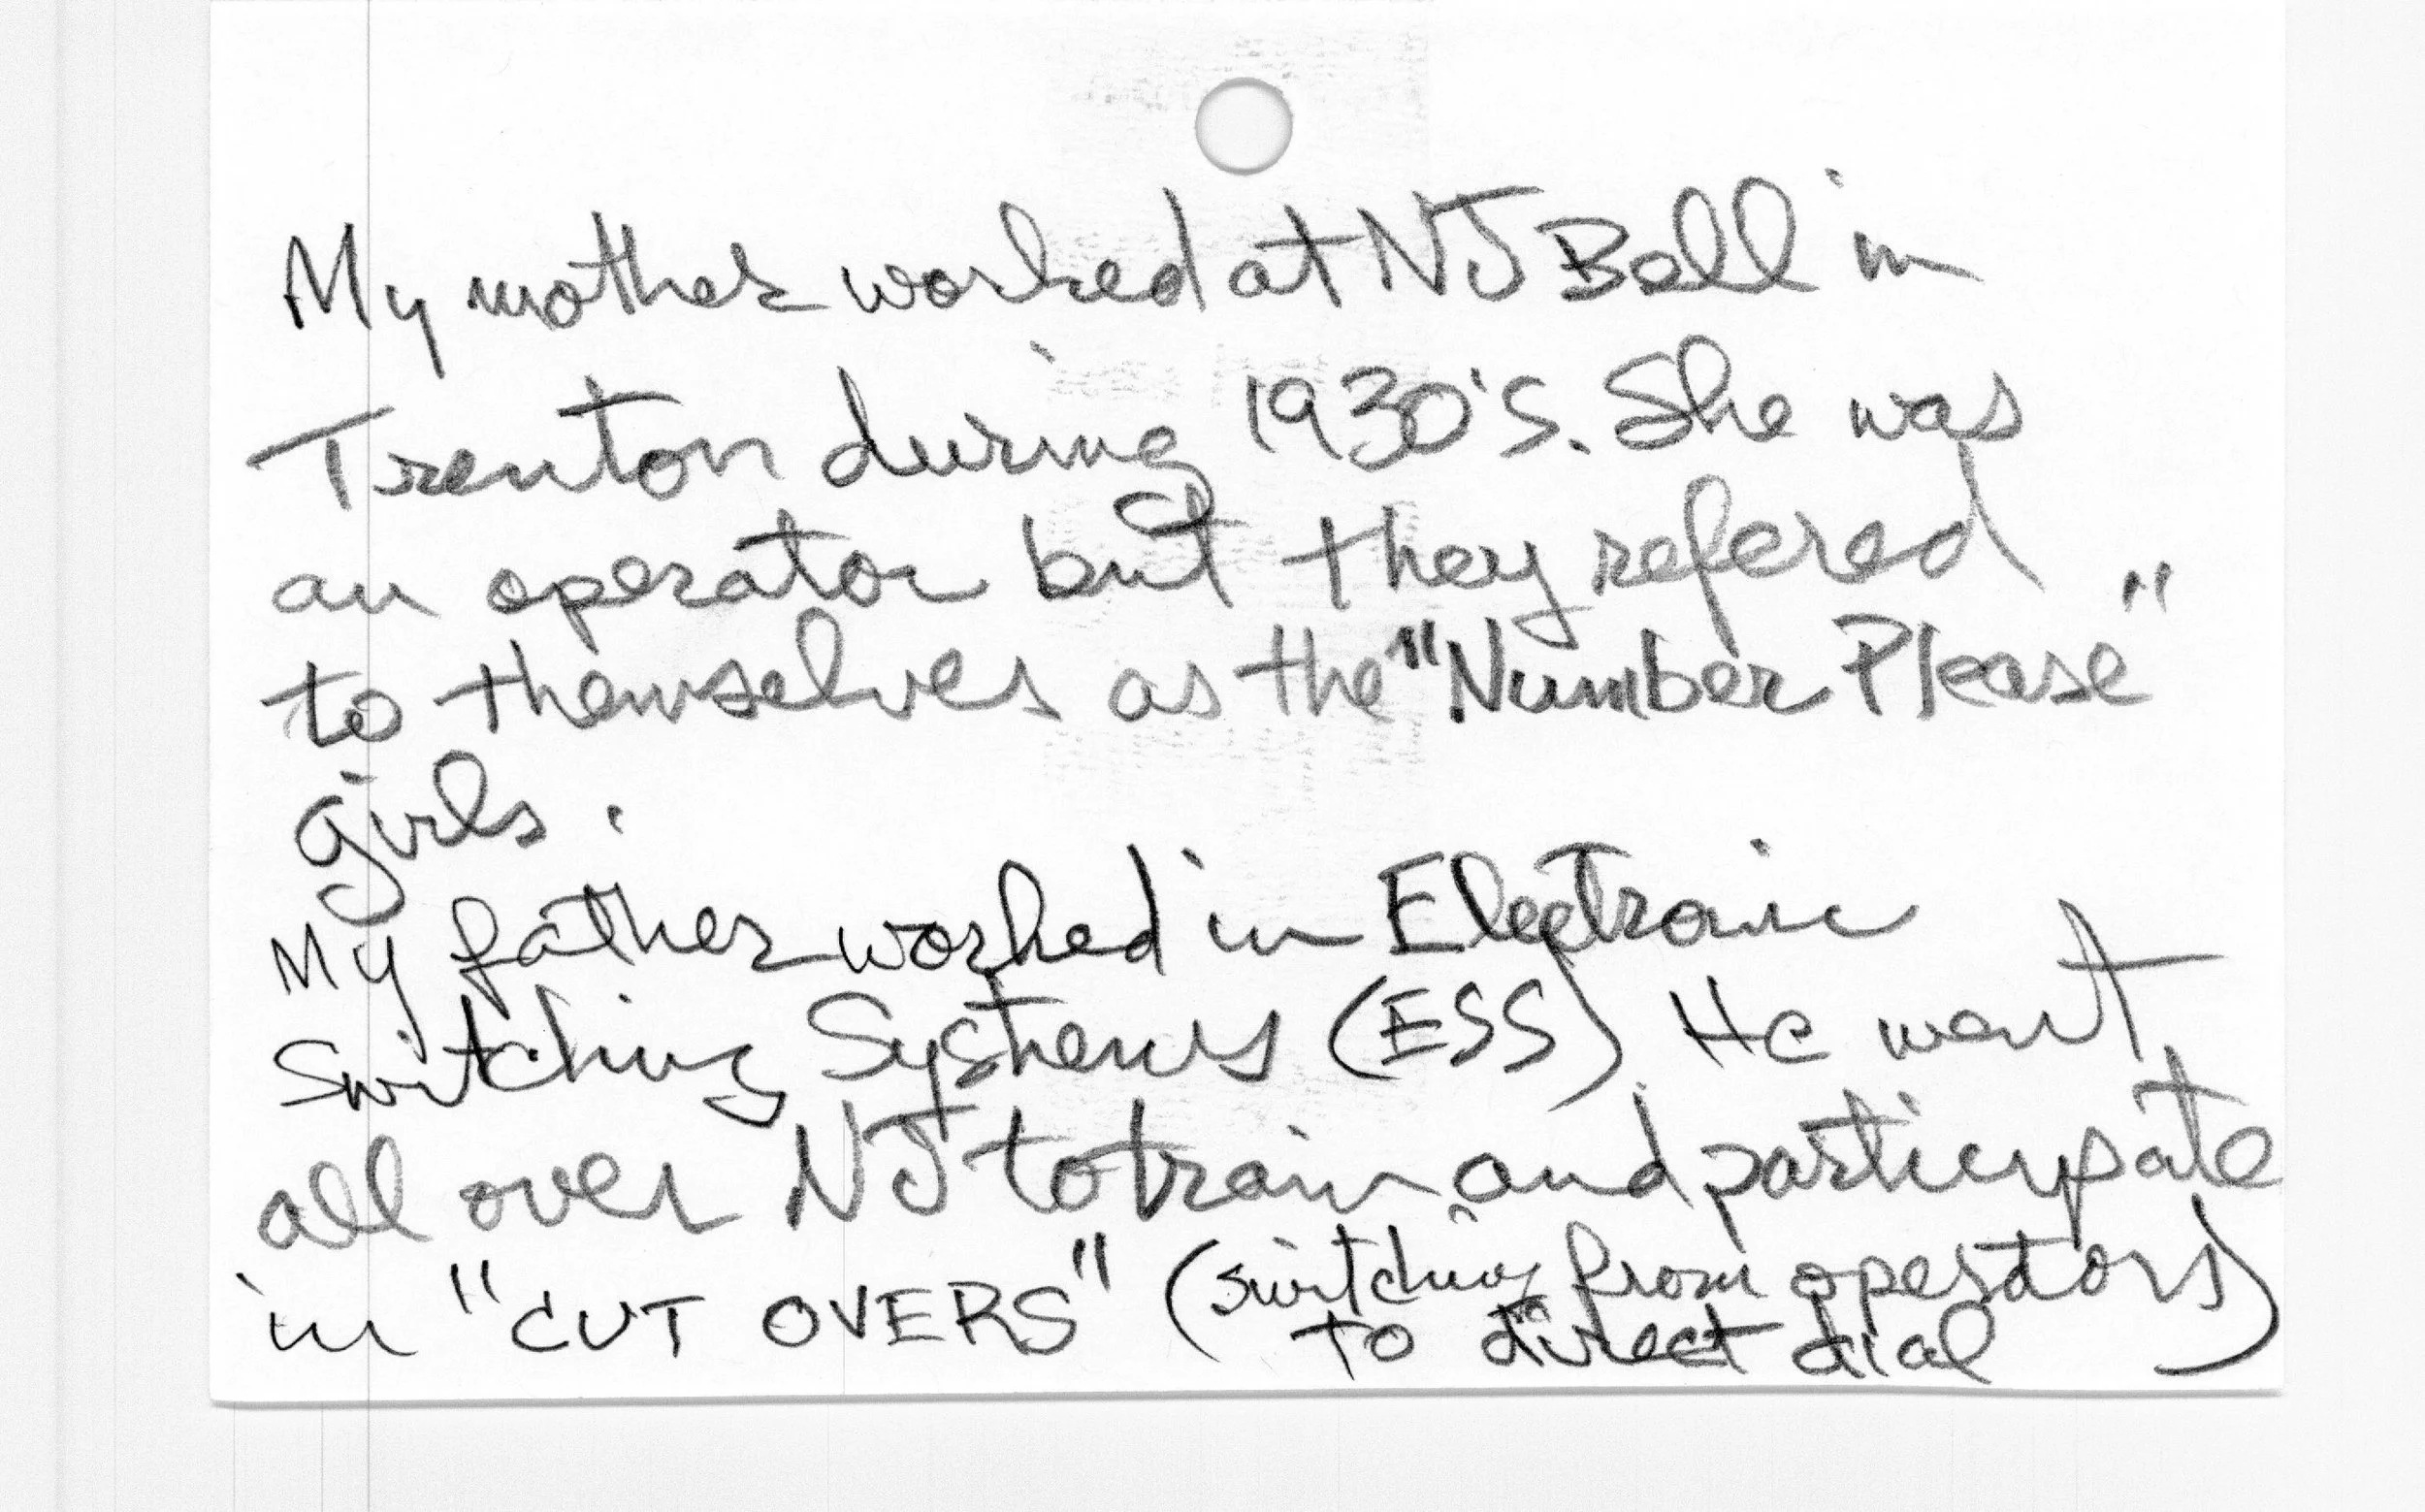 My mother worked at NJ Bell in
Trenton during 1930's. She was
an operator but they refered
to themselves as the "Number Please"
girls.
My father worked in Electronic
Switching Systems (ESS). He went
all over NJ to train and participate
in "CUT OVERS" (switching from operators)
to direct dial